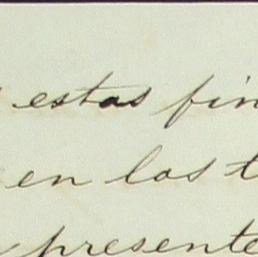 estas fin
en los t
presente